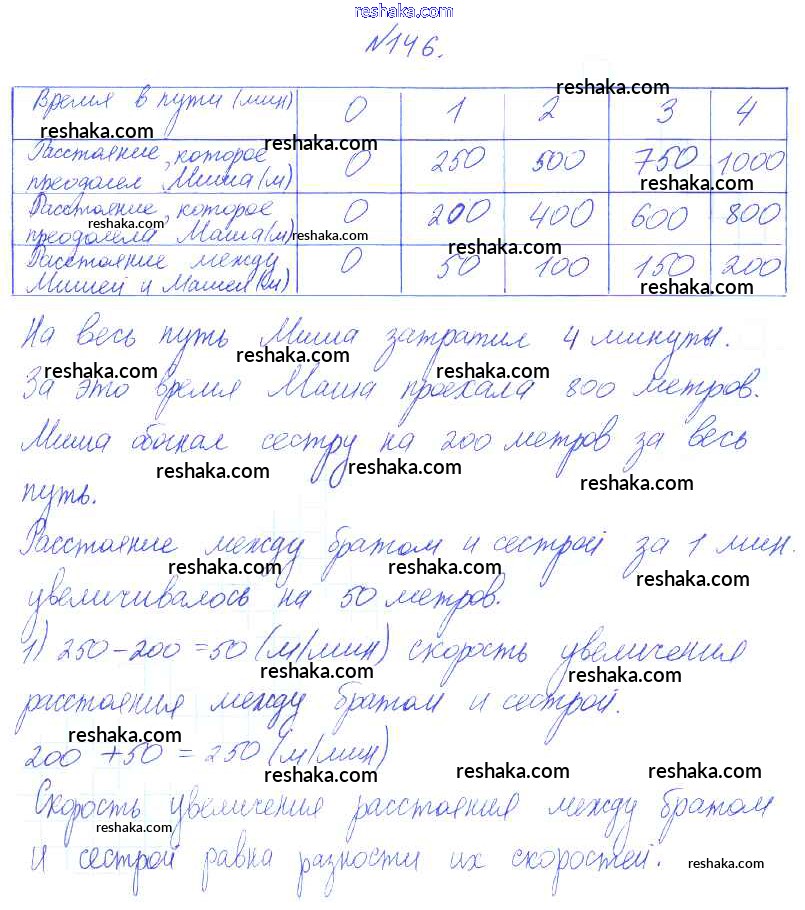 reshaka.com
№146.
Время в пути (мин) 0 1 2 3 4
reshaka.com reshaka.com
reshaka.com
Расстояние, которое 0 250 500 750 1000
преодолел Миша (м)
reshaka.com
Расстояние, которое 0 200 400 600 800
преодолела Маша (м)
reshaka.com reshaka.com
Расстояние между 0 50 100 150 200
Мишей и Машей (м)
reshaka.com
На весь путь Миша затратил 4 минуты.
reshaka.com reshaka.com
За это время Маша проехала 800 метров.
reshaka.com reshaka.com
Миша обогнал сестру на 200 метров за весь
reshaka.com reshaka.com
путь.
Расстояние между братом и сестрой за 1 мин.
reshaka.com reshaka.com
увеличивалось на 50 метров.
1) 250-200=50 (м/мин) скорость увеличения
reshaka.com reshaka.com
расстояния между братом и сестрой.
200+50=250 (м/мин)
reshaka.com reshaka.com reshaka.com
Скорость увеличения расстояния между братом
reshaka.com
и сестрой равна разности их скоростей.
reshaka.com